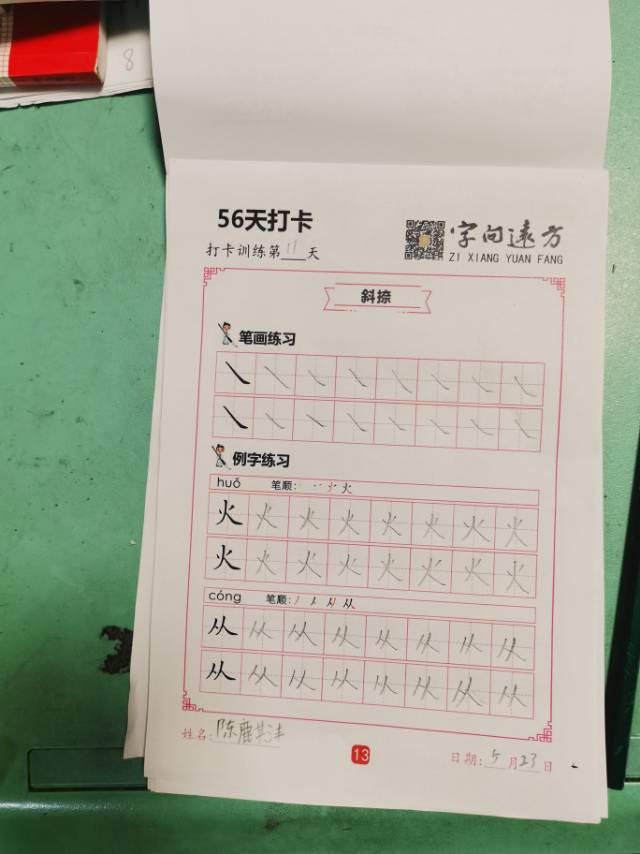 8
56天打卡
打卡训练第11天
字向远方
ZI XIANG YUAN FANG
斜捺
笔画练习
例字练习
huǒ 笔顺: 火
火火火火火火火火
火火火火火火火火
cóng 笔顺: 从
从从从从从从从从
从从从从从从从从
姓名:陈鹿
13
日期:5月23日